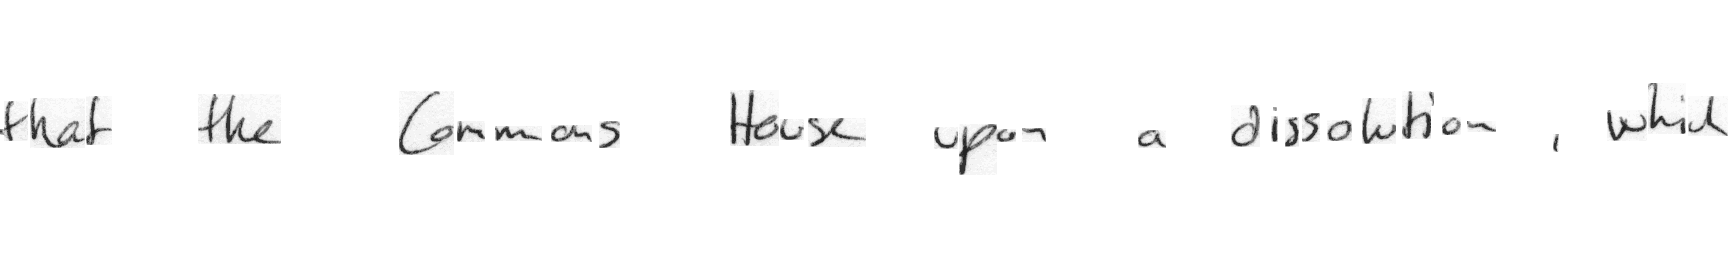 that the Commons House upon a dissolution , which